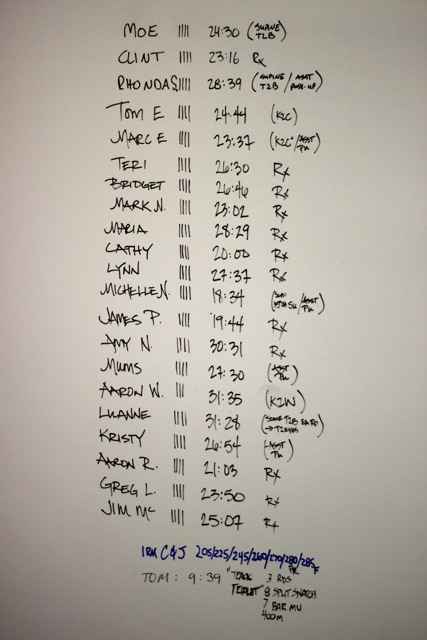 MOE |||| 24:30 (SUPINE T2B)
CLINT |||| 23:16 Rx
RHONDA S |||| 28:39 (SUPINE T2B / ASST PUSH-UP)
TOM E |||| 24:44 (K2C)
MARC E |||| 23:37 (K2C / ASST PU)
TERI |||| 26:30 Rx
BRIDGET |||| 26:46 Rx
MARK N. |||| 23:02 Rx
MARIA |||| 28:29 Rx
CATHY |||| 20:00 Rx
LYNN |||| 27:37 Rx
MICHELLE N. |||| 18:34 ( / ASST PU)
JAMES P. |||| 19:44 Rx
AMY N. |||| 30:31 Rx
MUMS |||| 27:30 (ASST PU)
AARON W. ||| 31:35 (K2W)
LUANNE |||| 31:28 (SOME T2B
KRISTY |||| 26:54 (ASST PU)
AARON R. |||| 21:03 Rx
GREG L. |||| 23:50 Rx
JIM Mc |||| 25:07 Rx
1RM C&J 205/225/245/260/270/280/285 F
PR
TOM: 9:39 "TOMK 3 RDS
TRIPLET" 8 SPLIT SNATCH
7 BAR MU
400M